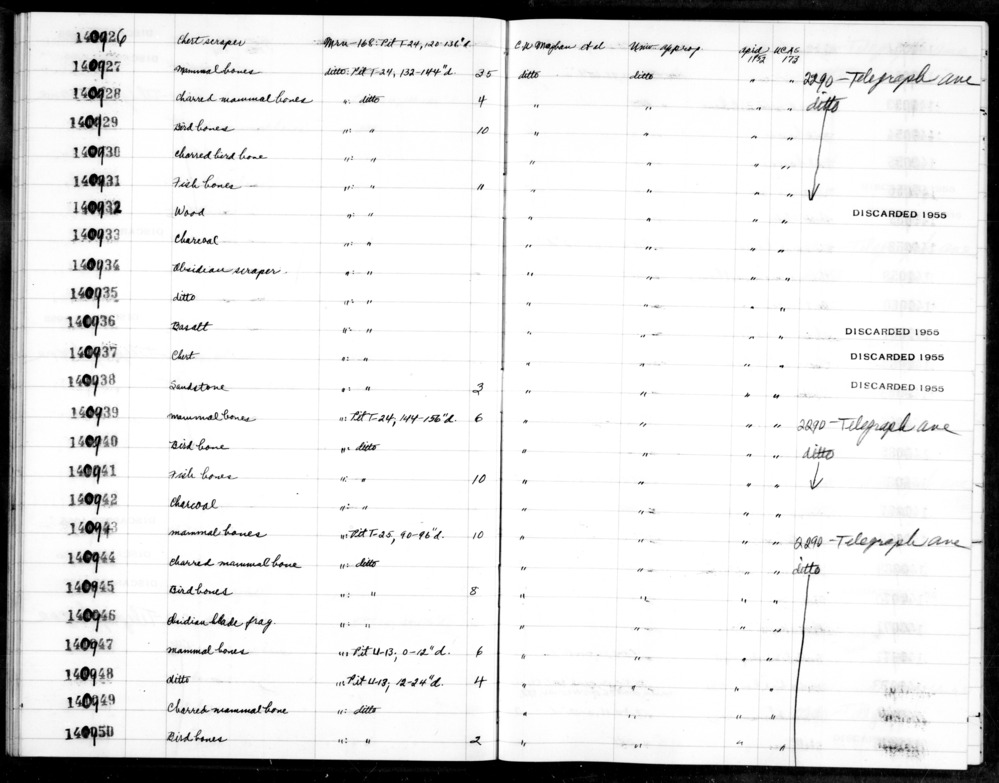 140926 Chert scraper Mrn-168: Pit T-24, 120-136"d. C.W. Meighan et al Univ. approp. apid 1952 UCAS 173
140927 Mammal bones ditto: Pit T-24, 132-144"d. 35 ditto ditto " " 2290-Telegraph ave
140928 Charred mammal bones ": ditto 4 " " " " ditto
140929 Bird bones ": " 10 " " " "
140930 Charred bird bone ": " " " " "
140931 Fish bones ": " 11 " " " "
140932 Wood ": " " " " " DISCARDED 1955
140933 Charcoal ": " " " " "
140934 Obsidian scraper. ": " " " " "
140935 ditto ": " " " "
140936 Basalt ": " " " " " DISCARDED 1955
140937 Chert ": " " " " " DISCARDED 1955
140938 Sandstone ": " 3 " " " " DISCARDED 1955
140939 Mammal bones ": Pit T-24, 144-156"d. 6 " " " " 2290-Telegraph ave
140940 Bird bone ": ditto " " " " ditto
140941 Fish bones ": " 10 " " " "
140942 Charcoal ": " " " " "
140943 Mammal bones ": Pit T-25, 90-96"d. 10 " " " " 2290-Telegraph ave
140944 Charred mammal bone ": ditto " " " " ditto
140945 Bird bones ": " 8 " " " "
140946 Obsidian blade frag. ": " " " " "
140947 Mammal bones ": Pit U-13; 0-12"d. 6 " " " "
140948 ditto ": Pit U-13; 12-24"d. 4 " " " "
140949 Charred mammal bone ": ditto " " " "
140950 Bird bones ": " 2 " " " "